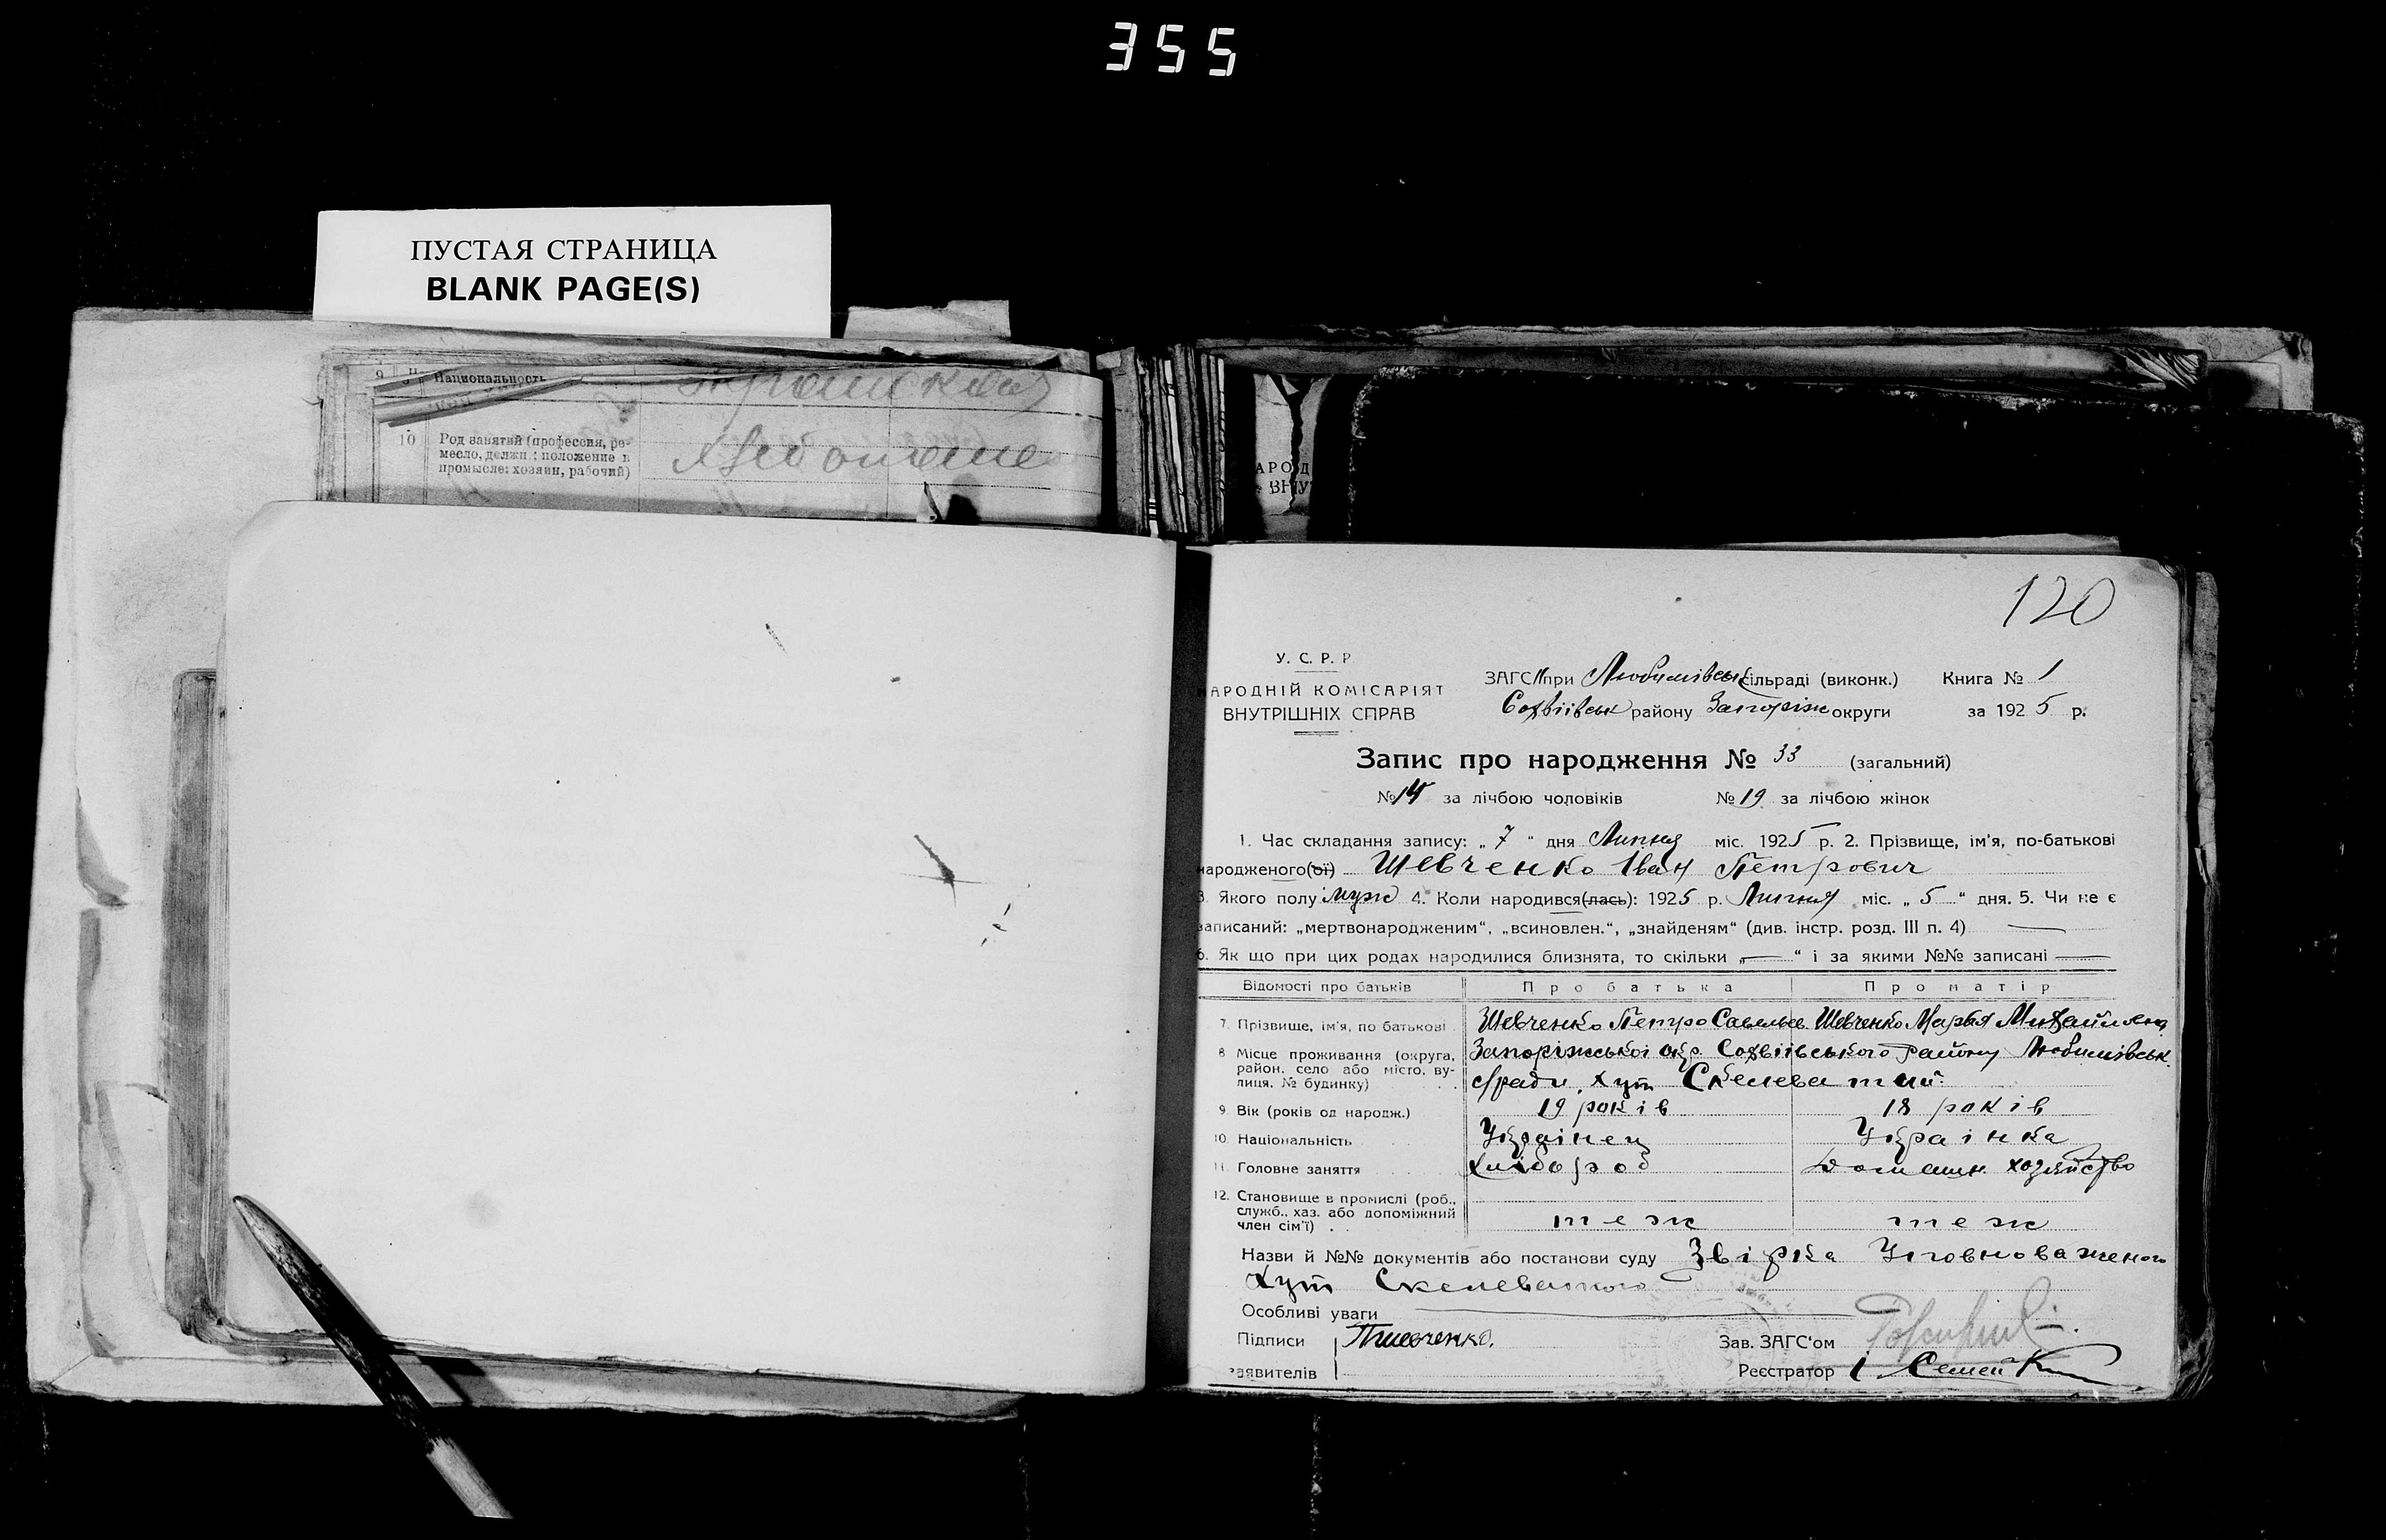 355
ПУСТАЯ СТРАНИЦА
BLANK PAGE(S)
9 Национальность
10 Род занятий (профессия, ре-
месло, должн.: положение в
промысле: хозяин, рабочий)
АРОД
ВНУ
120
У. С. Р. Р
АРОДНІЙ КОМІСАРІЯТ
ВНУТРІШНІХ СПРАВ
ЗАГС при Любимівськ сільраді (виконк.) Книга № 1
Софіївськ району Запоріж округи за 1925 р.
Запис про народження № 33 (загальний)
№ 14 за лічбою чоловіків № 19 за лічбою жінок
1. Час складання запису: „ 7 “ дня Липня міс. 1925 р. 2. Прізвище, ім'я, по-батькові
народженого(ої) Шевченко Іван Петрович
3. Якого полу муж 4. Коли народився(лась): 1925 р. Липня міс. „ 5 “ дня. 5. Чи не є
записаний: „мертвонародженим“, „всиновлен.“, „знайденям“ (див. інстр. розд. III п. 4) —
6. Як що при цих родах народилися близнята, то скільки „—“ і за якими №№ записані —
Відомості про батьків Про батька Про матір
7. Прізвище, ім'я, по батькові Шевченко Петро Савельев. Шевченко Марья Михайловна
8 Місце проживання (округа, Запоріжськоі окр. Софіївського району Любимівськ
район, село або місто, ву-
лиця, № будинку) с/ради, хут Скелеватий
9. Вік (років од народж.) 19 років 18 років
10. Національність Українец Українка
11. Головне заняття хлібороб Домашн. хозяйство
12. Становище в промислі (роб.,
служб., хаз. або допоміжний
член сім'ї) теж теж
Назви й №№ документів або постанови суду Звірка Уповноваженого
хут Скелеватого
Особливі уваги —
Підписи Пшевченко. Зав. ЗАГС'ом
заявителів Реєстратор